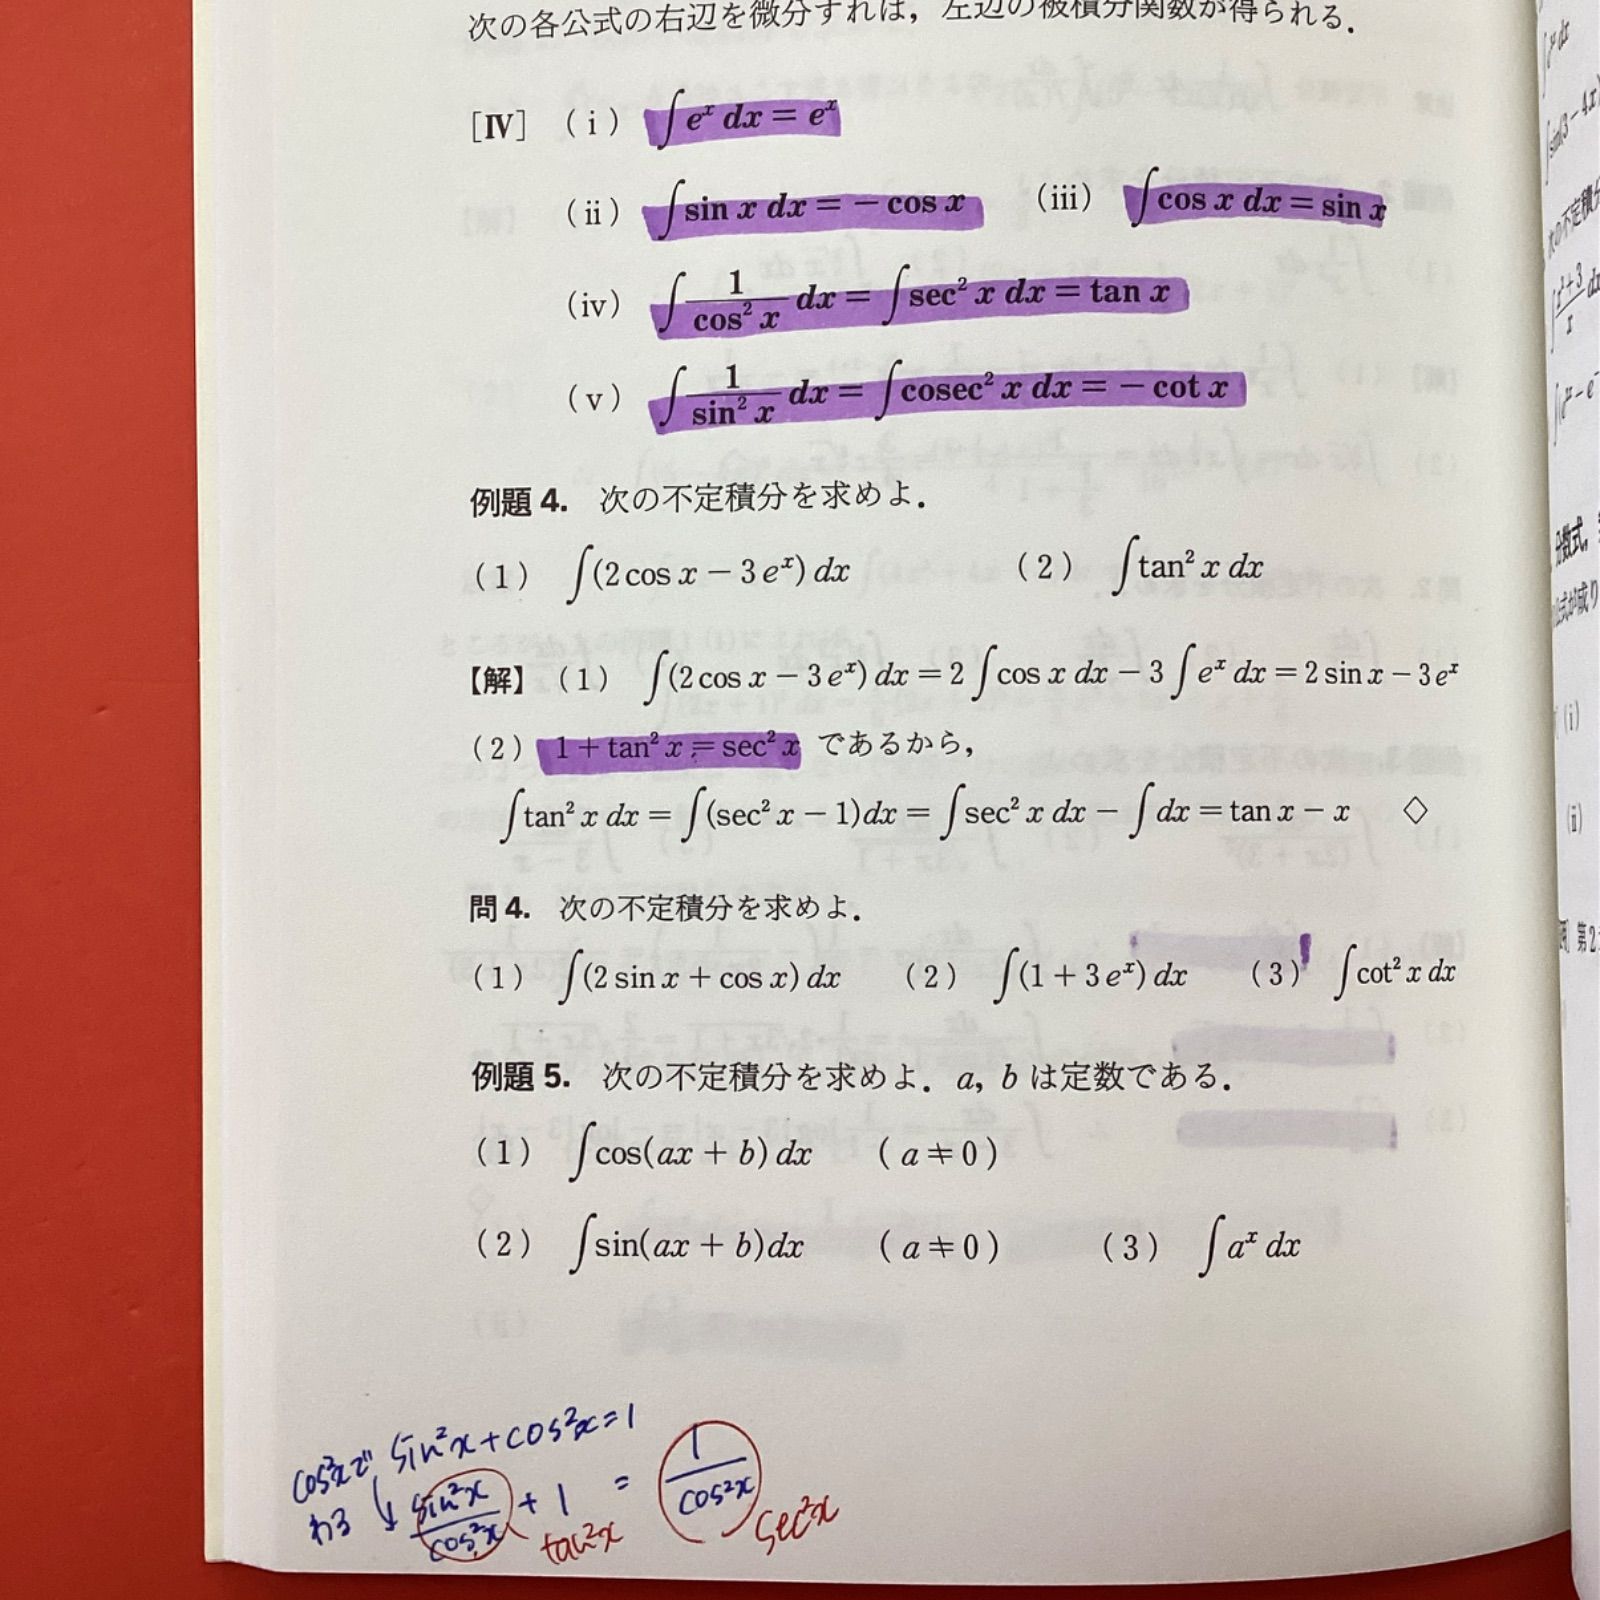 次の各公式の右辺を微分すれば，左辺の被積分関数が得られる．
[IV] (i) ∫eˣ dx = eˣ
(ii) ∫sin x dx = − cos x (iii) ∫cos x dx = sin x
(iv) ∫1/cos² x dx = ∫sec² x dx = tan x
(v) ∫1/sin² x dx = ∫cosec² x dx = − cot x
例題 4. 次の不定積分を求めよ．
(1) ∫(2 cos x − 3 eˣ) dx (2) ∫tan² x dx
【解】 (1) ∫(2 cos x − 3 eˣ) dx = 2 ∫cos x dx − 3 ∫eˣ dx = 2 sin x − 3 eˣ
(2) 1 + tan² x = sec² x であるから，
∫tan² x dx = ∫(sec² x − 1)dx = ∫sec² x dx − ∫dx = tan x − x ◇
問 4. 次の不定積分を求めよ．
(1) ∫(2 sin x + cos x) dx (2) ∫(1 + 3 eˣ) dx (3) ∫cot² x dx
例題 5. 次の不定積分を求めよ．a, b は定数である．
(1) ∫cos(ax + b) dx (a ≠ 0)
(2) ∫sin(ax + b)dx (a ≠ 0) (3) ∫aˣ dx
sin²x + cos²x = 1
cos²xで
わる ↓ sin²x/cos²x + 1 = 1/cos²x
tan²x sec²x
∫eˣ dx
∫sin(3 − 4x)
次の不定積分
∫x²+3/x dx
分数式，
公式が成り
(i)
(ii)
第2